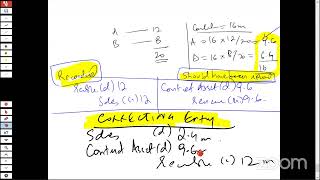 A — 12
B — 8
20
Contract = 16m
A = 16 x 12/20 = 9.6
B = 16 x 8/20 = 6.4
16
Recorded
Should have been record
(d) 12
Sales (c) 12
Contract Asset (d) 9.6
Revenue (c) 9.6
CORRECTING Entry
Sales (d) 2.4m
Contract Asset (d) 9.6
Receivable (c) 12m
zoom